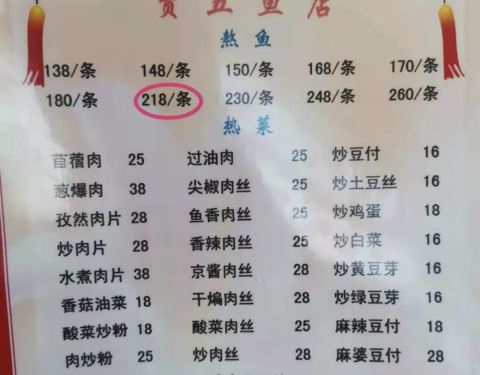 五鱼店
熬鱼
138/条 148/条 150/条 168/条 170/条
180/条 218/条 230/条 248/条 260/条
热菜
苜蓿肉 25 过油肉 25 炒豆付 16
葱爆肉 38 尖椒肉丝 25 炒土豆丝 16
孜然肉片 28 鱼香肉丝 28 炒鸡蛋 18
炒肉片 28 香辣肉丝 28 炒白菜 16
水煮肉片 38 京酱肉丝 28 炒黄豆芽 16
香菇油菜 18 干煸肉丝 28 炒绿豆芽 16
酸菜炒粉 18 酸菜肉丝 25 麻辣豆付 18
肉炒粉 25 炒肉丝 28 麻婆豆付 28